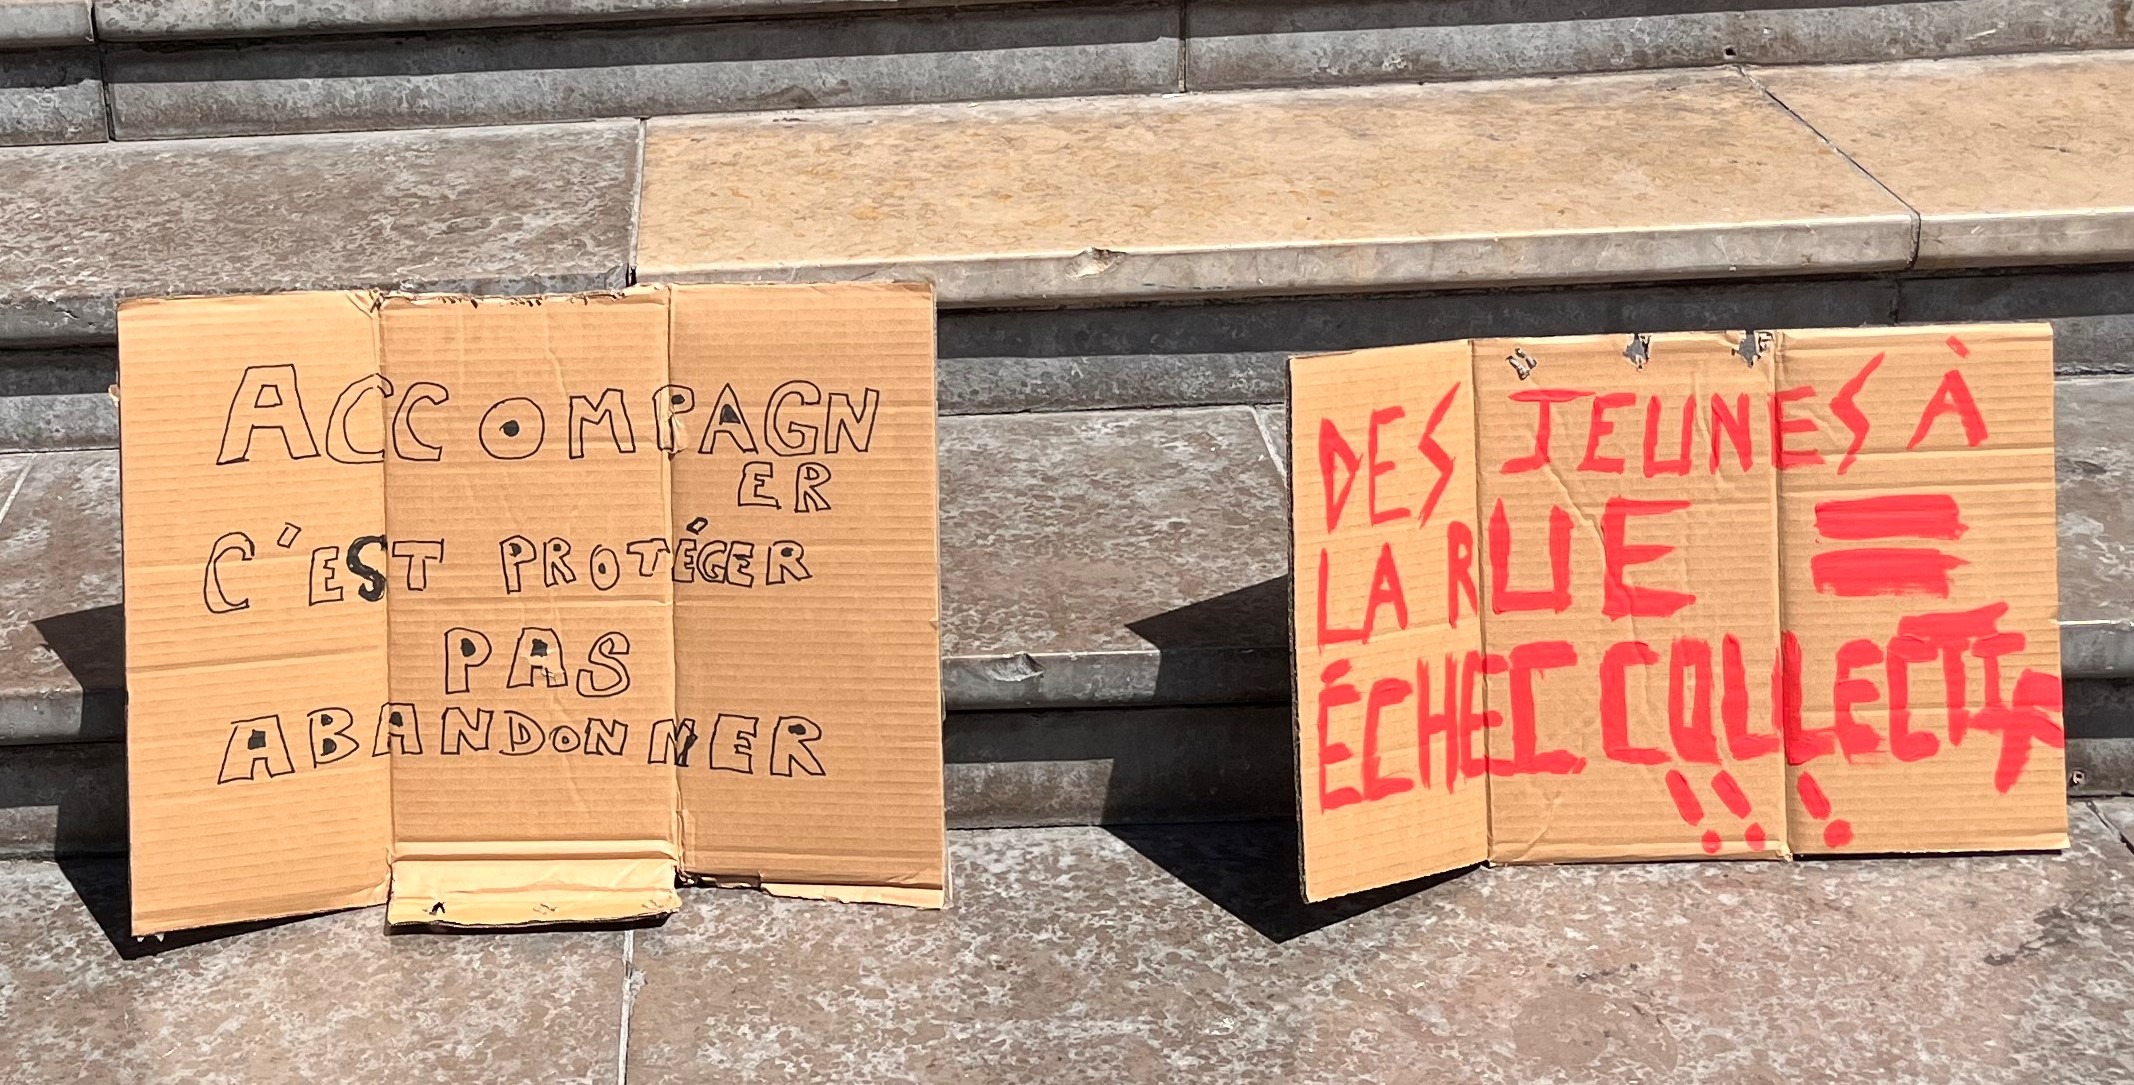 ACCOMPAGN
ER
C'EST PROTÉGER
PAS
ABANDONNER
DES JEUNES À
LA RUE =
ÉCHEC COLLECTIF
!!!